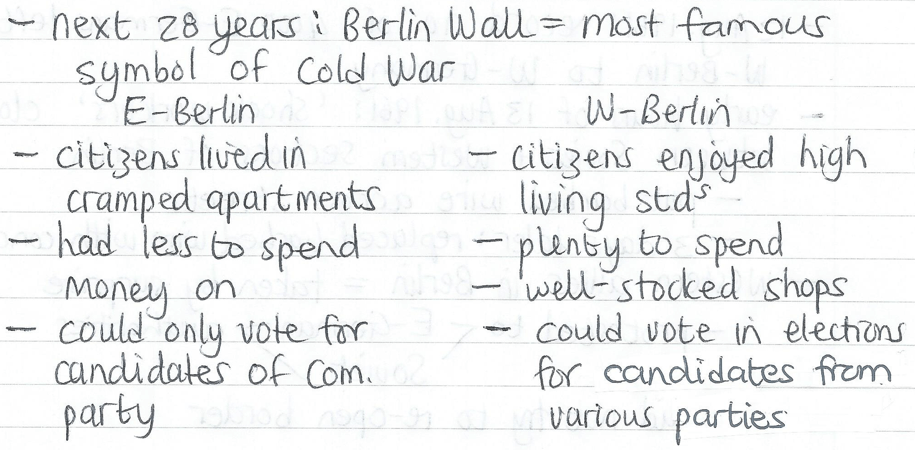 – next 28 years : Berlin Wall = most famous
symbol of Cold War
E-Berlin
– citizens lived in
cramped apartments
– had less to spend
money on
– could only vote for
candidates of Com.
party
W-Berlin
– citizens enjoyed high
living stds
– plenty to spend
– well-stocked shops
– could vote in elections
for candidates from
various parties